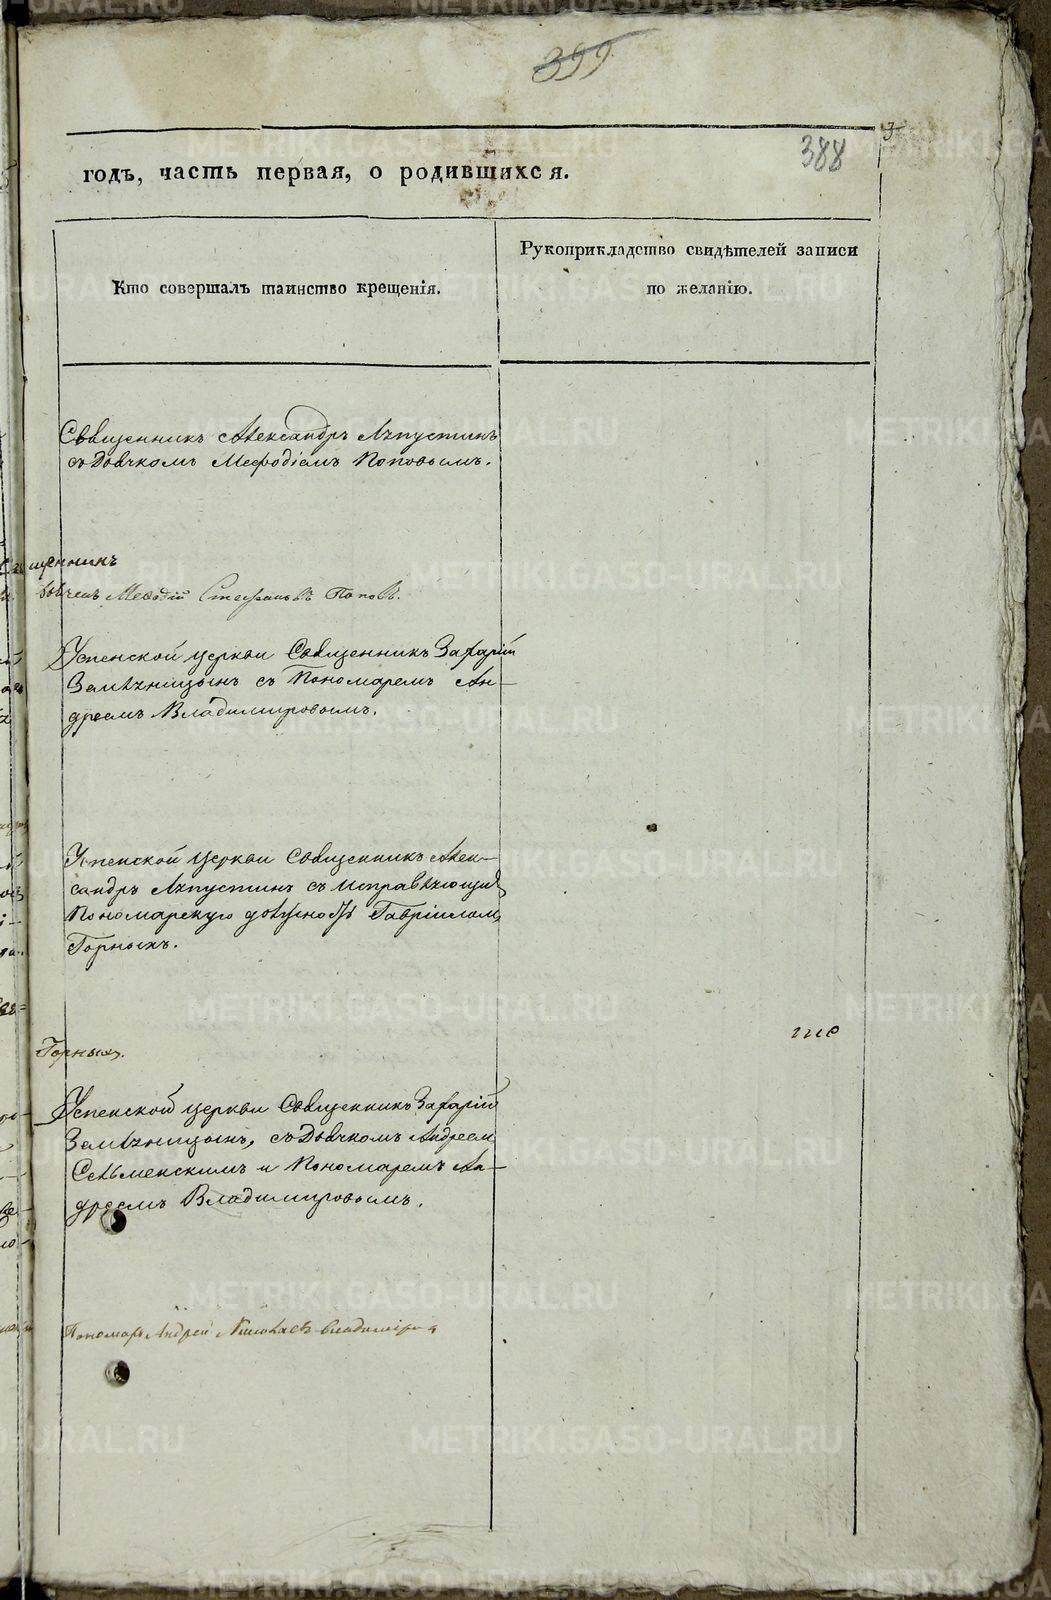 399
388
годъ, часть первая, о родившихся.
Кто совершалъ таинство крещенія.
Рукоприкладство свидѣтелей записи
по желанію.
Священникъ Александръ Лѣпустинъ
съ Дьячкомъ Меѳодіемъ Поповымъ.
щенникъ
Дьячекъ Меѳодій Стефановъ Поповъ.
Успенской церкви Священникъ Захарій
Земляницынъ съ Пономаремъ Ан-
дреемъ Владимировымъ.
Успенской церкви Священникъ Алек-
сандръ Лѣпустинъ съ исправляющимъ
Пономарскую должность Гавріиломъ
Горныхъ.
Горныхъ.
Успенской церкви Священникъ Захарій
Земляницынъ, съ Дьячкомъ Андреемъ
Сельменскимъ и Пономаремъ Ан-
дреемъ Владимировымъ.
Пономарь Андрей
METRIKI.GASO-URAL.RU